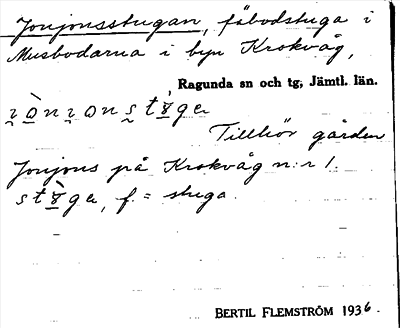 Jonjonsstugan, fäbodstuga i
Musbodarna i byn Krokvåg,
Ragunda sn och tg, Jämtl. län.
Tillhör gården
Jonjons på Krokvåg n:r 1.
f. = stuga.
BERTIL FLEMSTRÖM 1936.